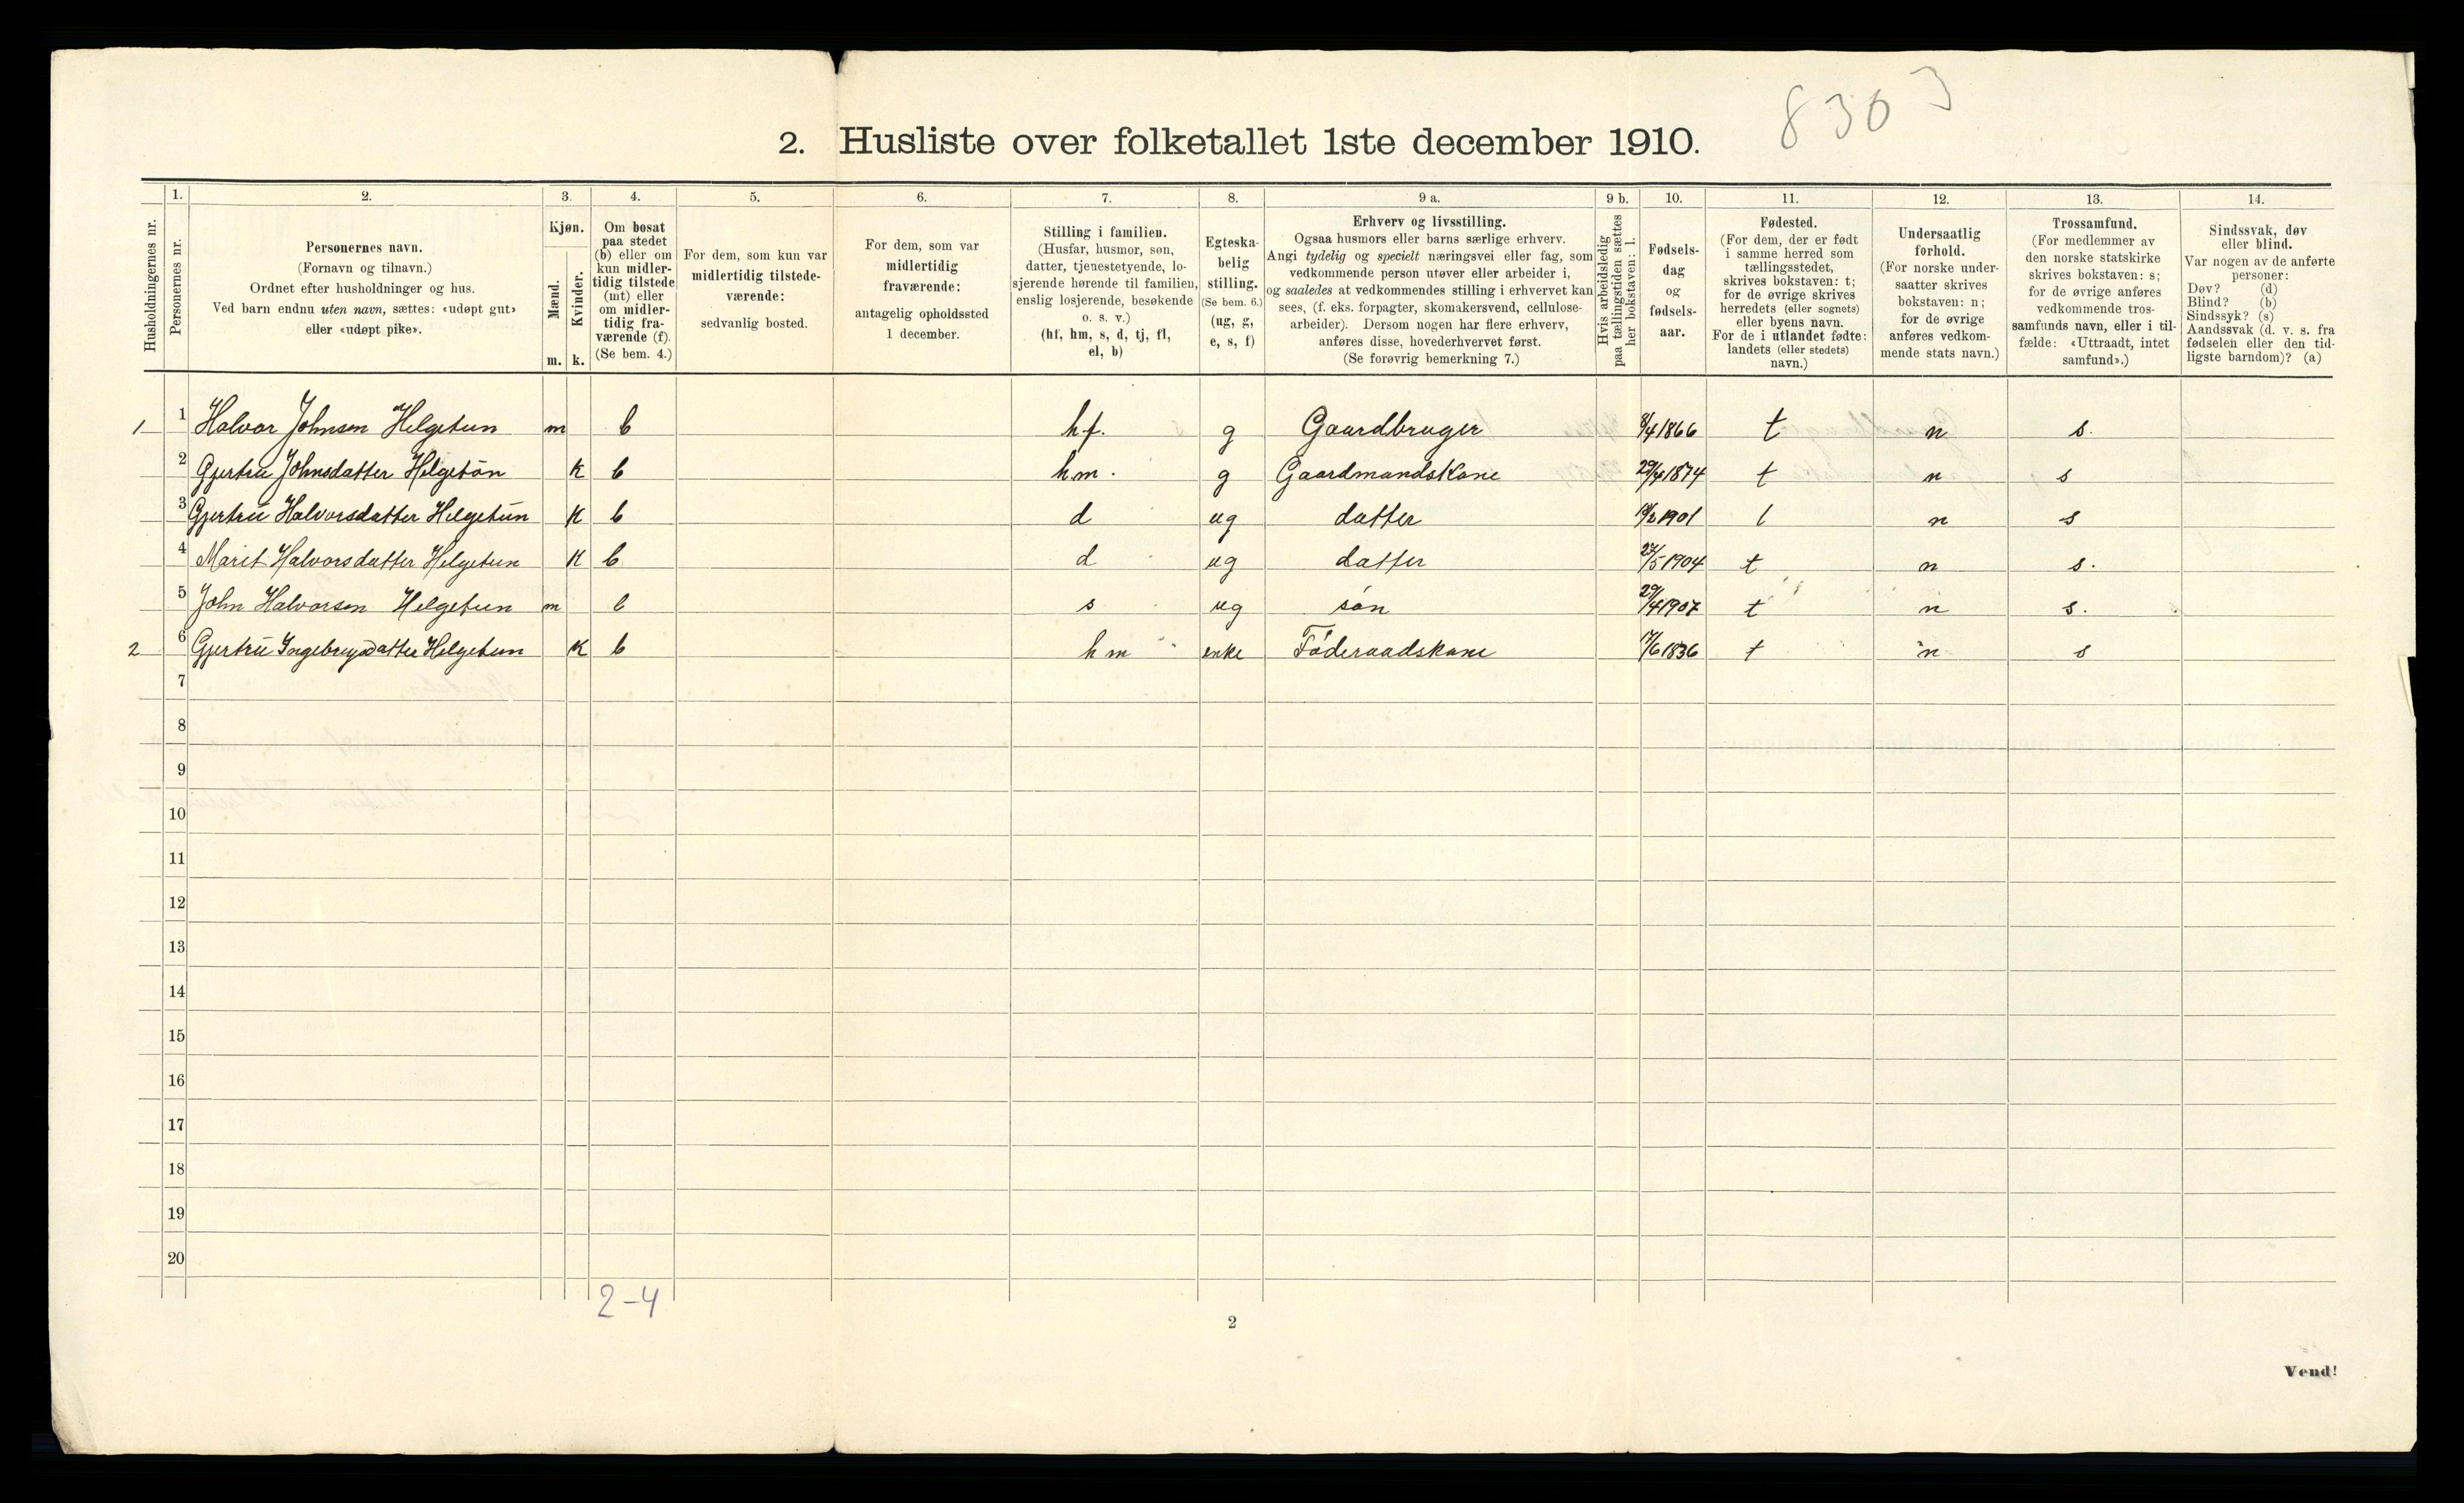 8303
2. Husliste over folketallet 1ste december 1910.
Husholdningernes nr.
1.
Personernes nr.
2.
Personernes navn.
(Fornavn og tilnavn.)
Ordnet efter husholdninger og hus.
Ved barn endnu uten navn, sættes: «udøpt gut»
eller «udøpt pike».
3.
Kjøn.
Mænd.
Kvinder.
m. k.
4.
Om bosat
paa stedet
(b) eller om
kun midler-
tidig tilstede
(mt) eller
om midler-
tidig fra-
værende (f).
(Se bem. 4.)
5.
For dem, som kun var
midlertidig tilstede-
værende:
sedvanlig bosted.
6.
For dem, som var
midlertidig
fraværende:
antagelig opholdssted
1 december.
7.
Stilling i familien.
(Husfar, husmor, søn,
datter, tjenestetyende, lo-
sjerende hørende til familien,
enslig losjerende, besøkende
o. s. v.)
(hf, hm, s, d, tj, fl,
el, b)
8.
Egteska-
belig
stilling.
(Se bem. 6.)
(ug, g,
e, s, f)
9 a.
Erhverv og livsstilling.
Ogsaa husmors eller barns særlige erhverv.
Angi tydelig og specielt næringsvei eller fag, som
vedkommende person utøver eller arbeider i,
og saaledes at vedkommendes stilling i erhvervet kan
sees, (f. eks. forpagter, skomakersvend, cellulose-
arbeider). Dersom nogen har flere erhverv,
anføres disse, hovederhvervet først.
(Se forøvrig bemerkning 7.)
9 b.
Hvis arbeidsledig
paa tællingstiden sættes
her bokstaven: l.
10.
Fødsels-
dag
og
fødsels-
aar.
11.
Fødested.
(For dem, der er født
i samme herred som
tællingsstedet,
skrives bokstaven: t;
for de øvrige skrives
herredets (eller sognets)
eller byens navn.
For de i utlandet fødte:
landets (eller stedets)
navn.)
12.
Undersaatlig
forhold.
(For norske under-
saatter skrives
bokstaven: n;
for de øvrige
anføres vedkom-
mende stats navn.)
13.
Trossamfund.
(For medlemmer av
den norske statskirke
skrives bokstaven: s;
for de øvrige anføres
vedkommende tros-
samfunds navn, eller i til-
fælde: «Uttraadt, intet
samfund».)
14.
Sindssvak, døv
eller blind.
Var nogen av de anførte
personer:
Døv? (d)
Blind? (b)
Sindssyk? (s)
Aandssvak (d. v. s. fra
fødselen eller den tid-
ligste barndom)? (a)
1 1 Halvor Johnsen Helgetun m b hf. g Gaardbruger 8/4 1866 t n s.
2 Gjertru Johnsdatter Helgetøn K b hm. g Gaardmandskone 29/4 1874 t n s
3 Gjertrú Halvorsdatter Helgetun K b d ug datter 1901 t n s
4 Marit Halvorsdatter Helgetun K b d ug datter 27/5 1904 t n s.
5 John Halvorsen Helgetun m b s ug søn 29/4 1907 t n s.
2 6 Gjertrú Ingebrigsdatter Helgetun K b hm enke Føderaadskone 17/6 1836 t n s
7
8
9
10
11
12
13
14
15
16
17
18
19
20
2-4
2
Vend!